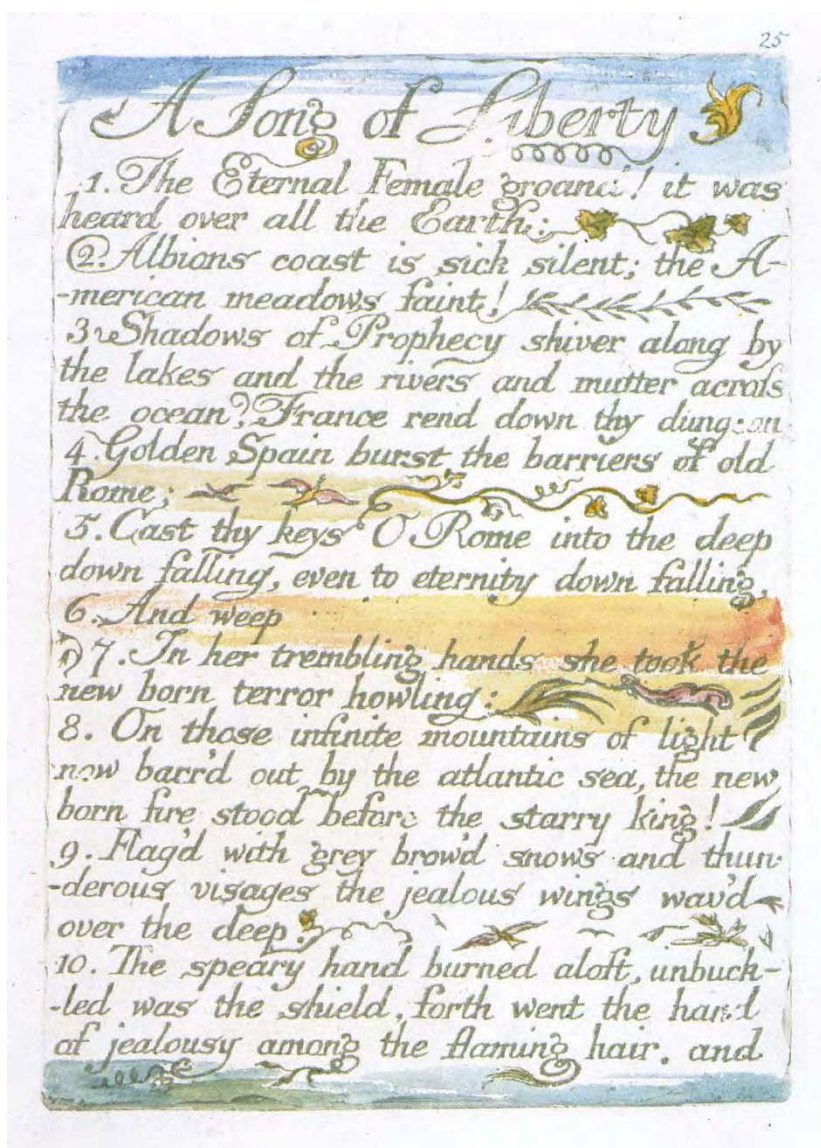 25
A Song of Liberty
1. The Eternal Female groand! it was
heard over all the Earth:
2. Albions coast is sick silent; the A-
-merican meadows faint!
3 Shadows of Prophecy shiver along by
the lakes and the rivers and mutter across
the ocean? France rend down thy dungeon
4. Golden Spain burst the barriers of old
Rome;
5. Cast thy keys O Rome into the deep
down falling, even to eternity down falling,
6. And weep
7. In her trembling hands she took the
new born terror howling:
8. On those infinite mountains of light
now barr'd out by the atlantic sea, the new
born fire stood before the starry king!
9. Flag'd with grey brow'd snows and thun-
-derous visages the jealous wings wav'd
over the deep.
10. The speary hand burned aloft, unbuck-
-led was the shield, forth went the hand
of jealousy among the flaming hair. and